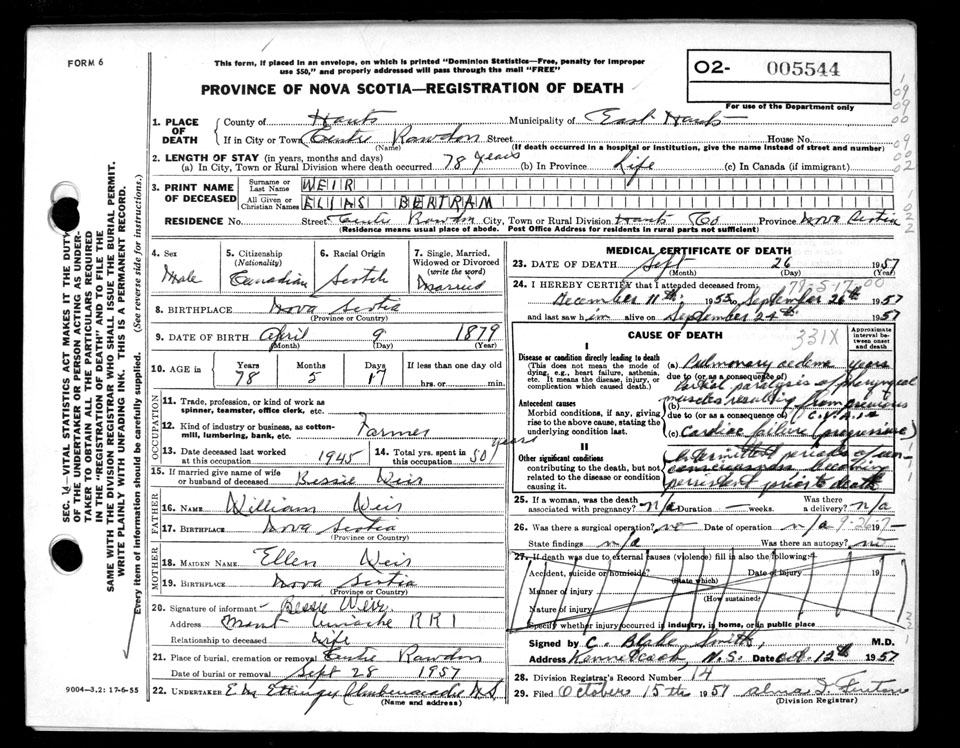 FORM 6
This form, if placed in an envelope, on which is printed "Dominion Statistics—Free, penalty for improper
use $50," and properly addressed will pass through the mail "FREE"
PROVINCE OF NOVA SCOTIA—REGISTRATION OF DEATH
02- 005544
For use of the Department only
1. PLACE OF DEATH
County of Hants Municipality of East Hants
If in City or Town Centre Rawdon Street House No.
(Name) (If death occurred in a hospital or institution, give the name instead of street and number)
2. LENGTH OF STAY (in years, months and days)
(a) In City, Town or Rural Division where death occurred 78 years (b) In Province Life (c) In Canada (if immigrant)
3. PRINT NAME OF DECEASED
Surname or Last Name WEIR
All Given or Christian Names ELIAS BERTRAM
RESIDENCE No. Street Centre Rawdon City, Town or Rural Division Hants Co Province Nova Scotia
(Residence means usual place of abode. Post Office Address for residents in rural parts not sufficient)
4. Sex Male
5. Citizenship (Nationality) Canadian
6. Racial Origin Scotch
7. Single, Married, Widowed or Divorced (write the word) Married
8. BIRTHPLACE Nova Scotia
(Province or Country)
9. DATE OF BIRTH April 9 1879
(Month) (Day) (Year)
10. AGE in Years 78 Months 5 Days 17 If less than one day old
hrs. or min.
OCCUPATION
11. Trade, profession, or kind of work as
spinner, teamster, office clerk, etc.
12. Kind of industry or business, as cotton-
mill, lumbering, bank, etc. Farmer
13. Date deceased last worked at this occupation 1945
14. Total yrs. spent in this occupation 50 years
15. If married give name of wife or husband of deceased Bessie Weir
FATHER
16. NAME William Weir
17. BIRTHPLACE Nova Scotia
(Province or Country)
MOTHER
18. MAIDEN NAME Ellen Weir
19. BIRTHPLACE Nova Scotia
(Province or Country)
20. Signature of informant Bessie Weir
Address Mount Uniacke RR1
Relationship to deceased Wife
21. Place of burial, cremation or removal Centre Rawdon
Date of burial or removal Sept 28 1957
22. UNDERTAKER E M Ettinger Shubenacadie N.S.
(Name and address)
9004—3.2: 17-6-55
MEDICAL CERTIFICATE OF DEATH
23. DATE OF DEATH Sept 26 1957
(Month) (Day) (Year)
24. I HEREBY CERTIFY that I attended deceased from:
79-5-17-00
December 11th: 1955 to September 26th 1957
and last saw him alive on September 24th 1957
CAUSE OF DEATH
331X
Approximate interval between onset and death
I
Disease or condition directly leading to death
(This does not mean the mode of dying, e.g., heart failure, asthenia, etc. It means the disease, injury, or complication which caused death.)
(a) Pulmonary oedema years
due to (or as a consequence of)
Partial paralysis of pharyngeal
muscles resulting from previous
Antecedent causes
Morbid conditions, if any, giving rise to the above cause, stating the underlying condition last.
(b)
due to (or as a consequence of)
(c) Cardiac failure (progressive)
II
Other significant conditions
contributing to the death, but not related to the disease or condition causing it.
Intermittent periods of un-
consciousness becoming
persistent prior to death
25. If a woman, was the death associated with pregnancy? n/a Duration — weeks. Was there a delivery? n/a
26. Was there a surgical operation? no Date of operation n/a 9-26 19 7-
State findings n/a Was there an autopsy? no
27. If death was due to external causes (violence) fill in also the following:
Accident, suicide or homicide? Date of injury 19
(State which)
Manner of injury
(How sustained)
Nature of injury
Specify whether injury occurred in industry, in home, or in public place
Signed by C. Blake Smith, M.D.
Address Kennetcook N.S. Date Oct. 12th 1957
28. Division Registrar's Record Number 14
29. Filed October 15th 1957
(Division Registrar)
SEC. 14—VITAL STATISTICS ACT MAKES IT THE DUTY
OF THE UNDERTAKER OR PERSON ACTING AS UNDER-
TAKER TO OBTAIN ALL THE PARTICULARS REQUIRED
IN THE "REGISTRATION OF DEATH" AND TO FILE THE
SAME WITH THE DIVISION REGISTRAR WHO SHALL ISSUE THE BURIAL PERMIT.
WRITE PLAINLY WITH UNFADING INK. THIS IS A PERMANENT RECORD.
Every item of information should be carefully supplied. (See reverse side for instructions.)